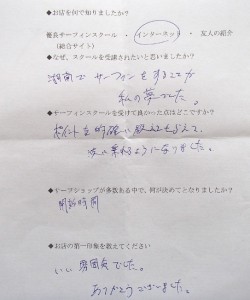 ◆お店を何で知りましたか？
優良サーフィンスクール ・ インターネット ・ 友人の紹介
（総合サイト）
◆なぜ、スクールを受講されたいと思いましたか？
湘南でサーフィンをすることが
私の夢でした。
◆サーフィンスクールを受けて良かった点はどこですか？
ポイントを的確に教えてもらえて、
波に乗れるようになりました。
◆サーフショップが多数ある中で、何が決めてとなりましたか？
開始時間
◆お店の第一印象を教えてください
いい雰囲気でした。
ありがとうございました。